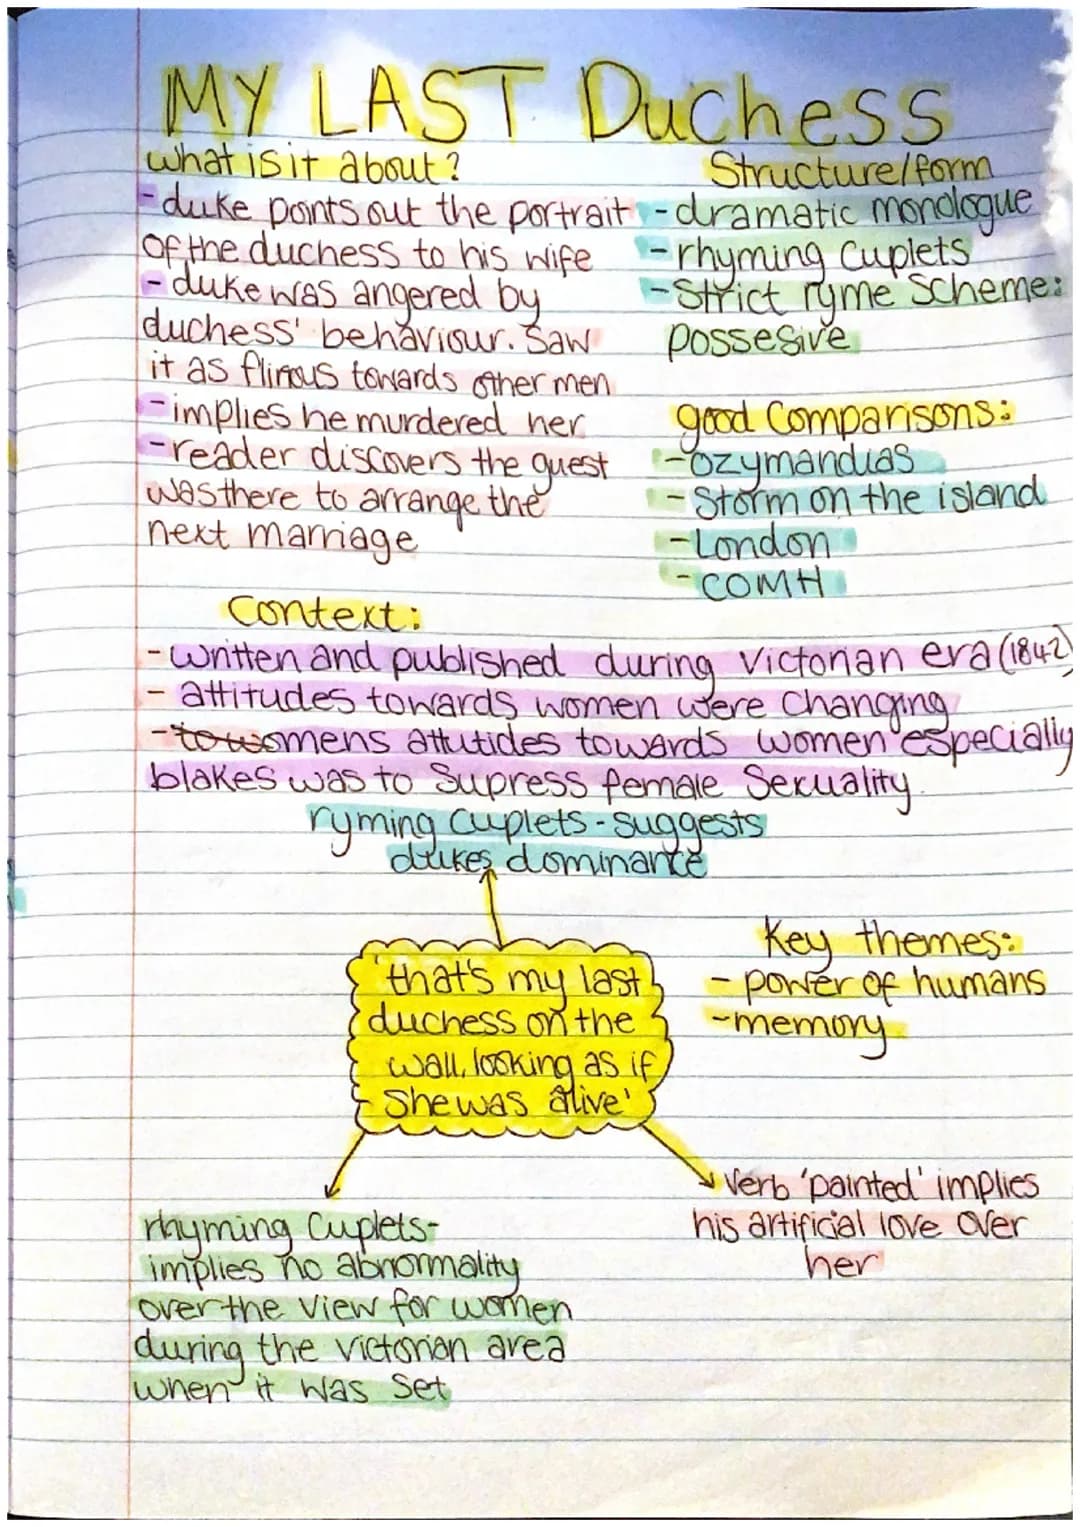 MY LAST Duchess
what is it about?
-duke points out the portrait
of the duchess to his wife
-duke was angered by
duchess' behaviour. Saw
it as flirtous towards other men
-implies he murdered her
-reader discovers the guest
was there to arrange the
next marriage
Structure/form
-dramatic monologue
-rhyming Cuplets
-Strict ryme Scheme:
possesive
good Comparisons:
-ozymandias
-Storm on the island
-London
-COMH
Context:
-written and published during Victorian era (1842)
- attitudes towards women were Changing
-mens attutides towards women especially
blakes was to Supress female Sexuality.
ryming cuplets - suggests
dukes dominance
'that's my last
duchess on the
wall, looking as if
She was alive'
Key themes:
- power of humans
-memory
Verb 'painted' implies
his artificial love over
her
rhyming Cuplets-
implies no abnormality
over the view for women
during the victorian area
when it was Set